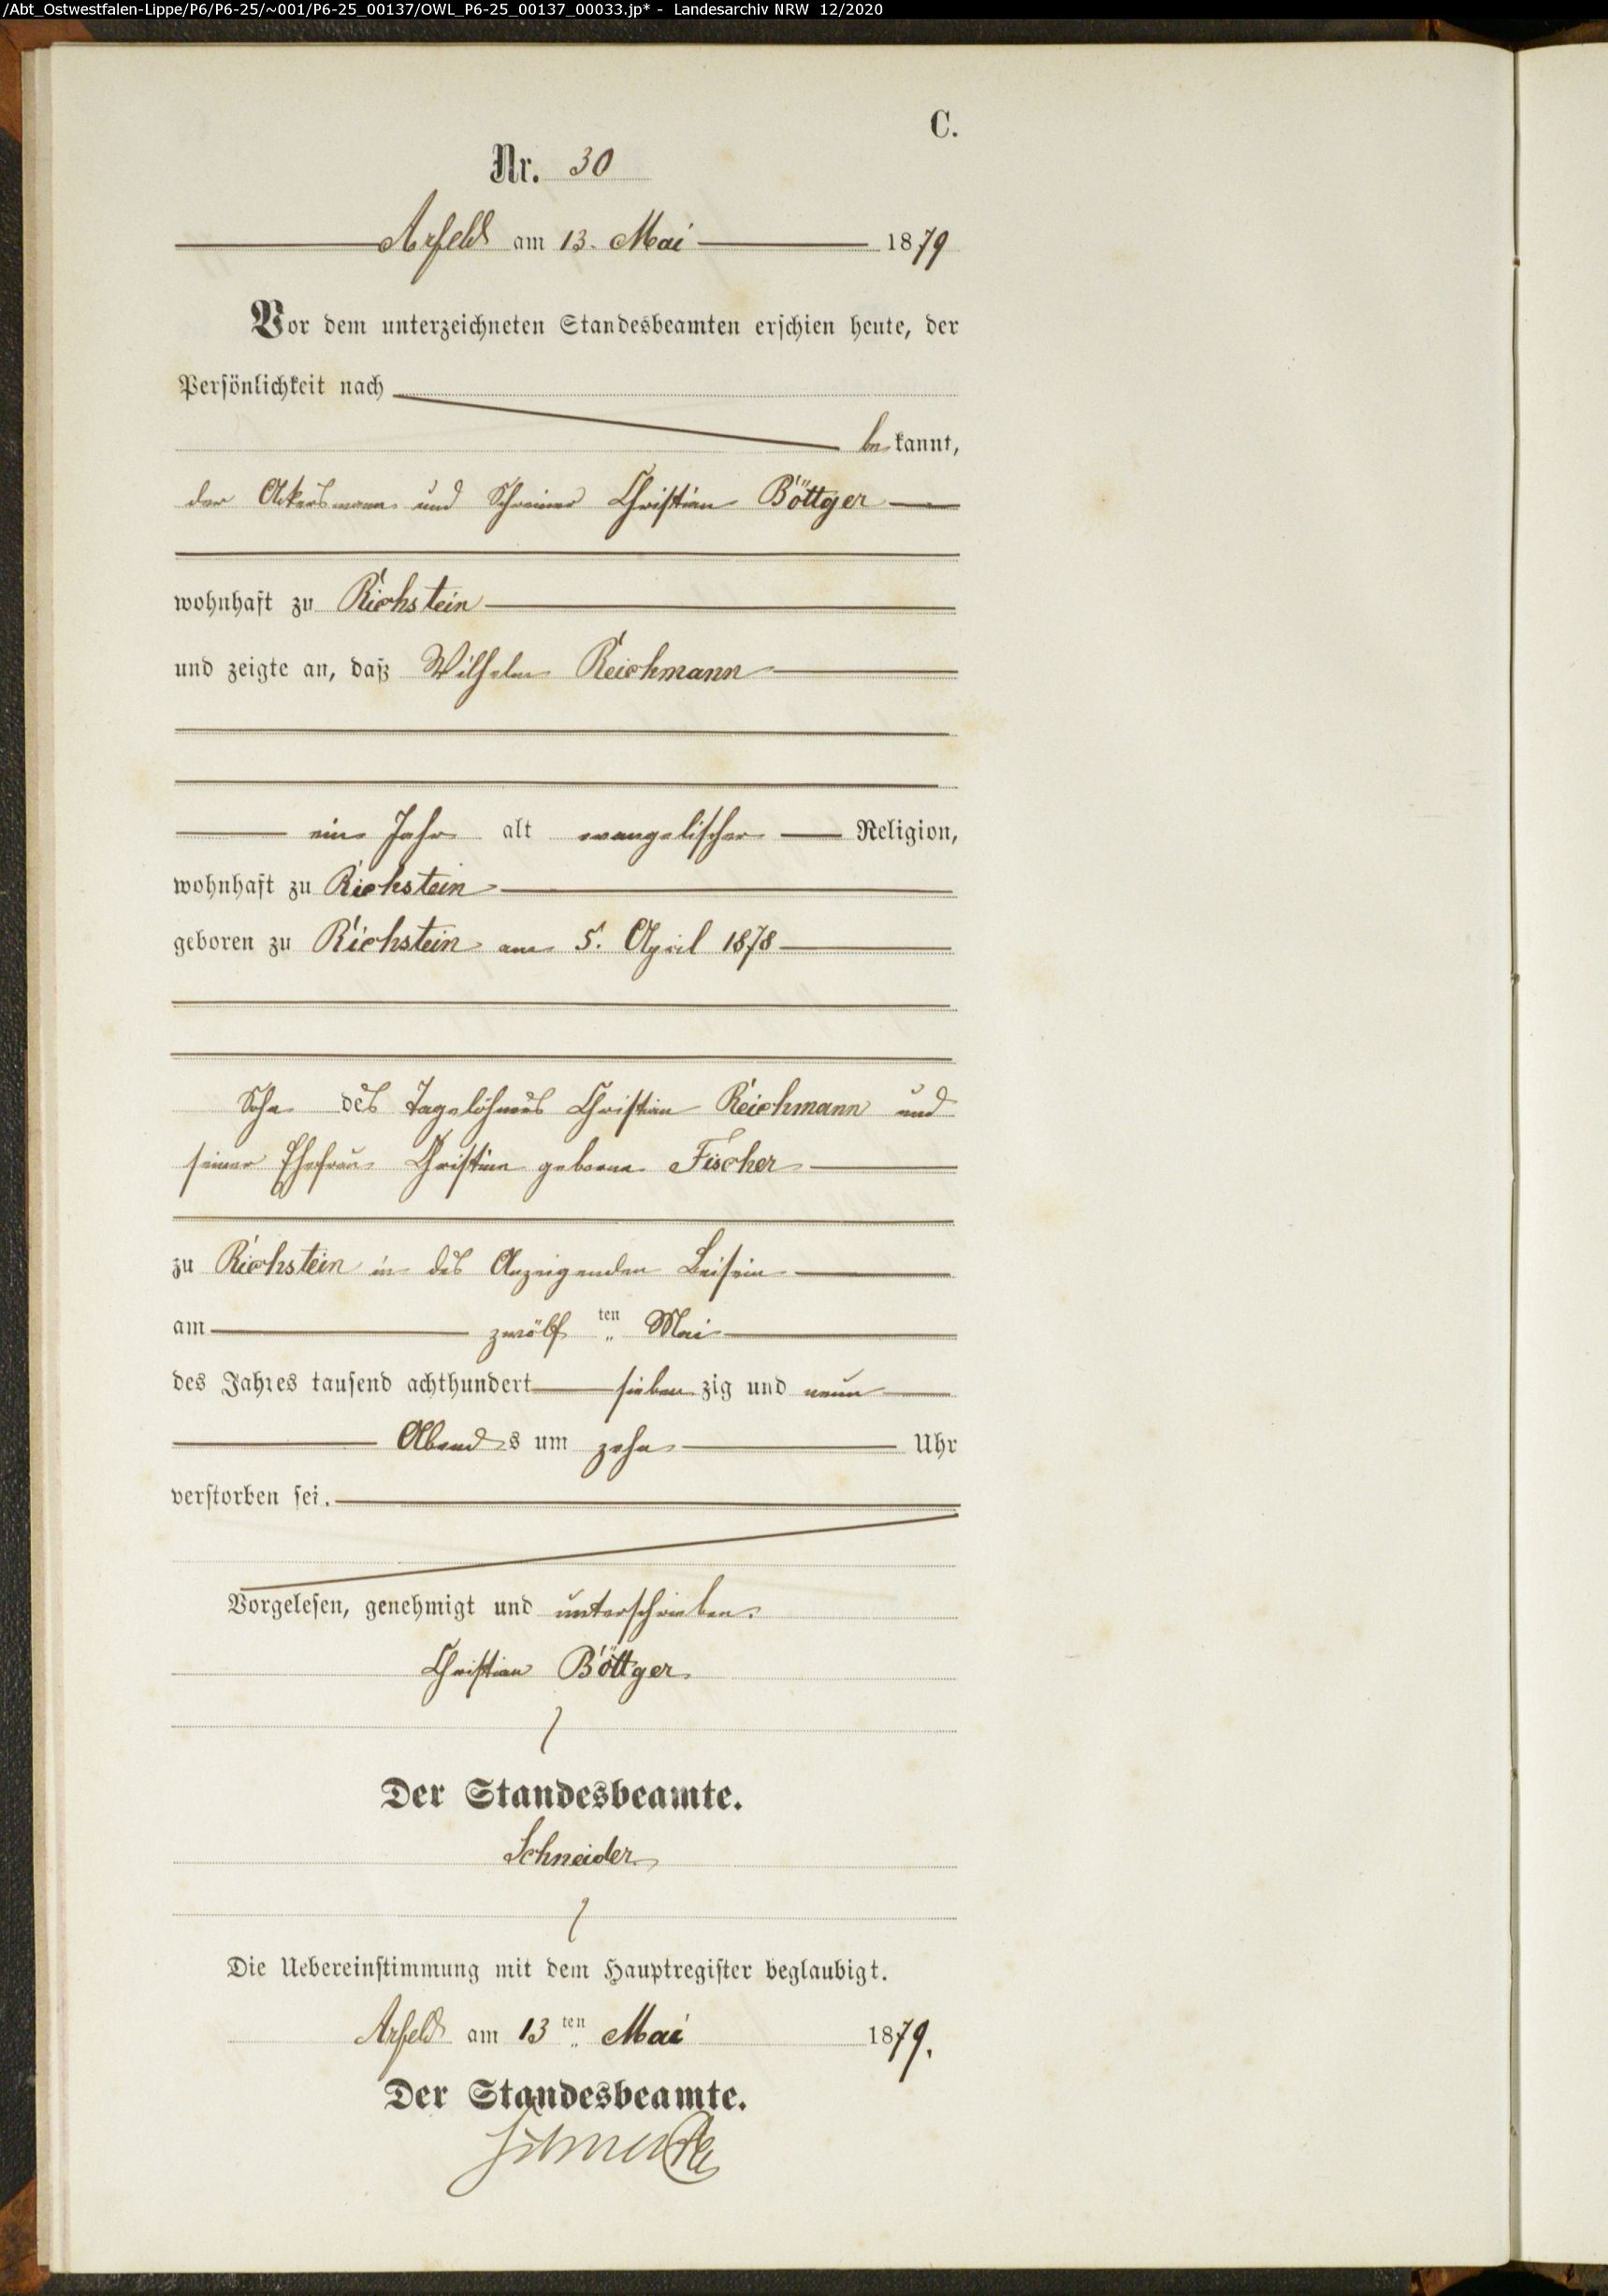 /Abt_Ostwestfalen-Lippe/P6/P6-25/~001/P6-25_00137/OWL_P6-25_00137_00033.jp* - Landesarchiv NRW 12/2020
C.
Nr. 30
Arfeld am 13. Mai 1879
Vor dem unterzeichneten Standesbeamten erschien heute, der
Persönlichkeit nach
bekannt,
der Ackersmann und Schreiner Christian Böttger
wohnhaft zu Richstein
und zeigte an, daß Wilhelm Reichmann
ein Jahr alt evangelischer Religion,
wohnhaft zu Richstein
geboren zu Richstein am 5. April 1878
Sohn des Tagelöhners Christian Reichmann und
seiner Ehefrau Christine geborne Fischer
zu Richstein in des Anzeigenden Beisein
am zwölf ten Mai
des Jahres tausend achthundert siebenzig und neun
Abends um zehn Uhr
verstorben sei.
Vorgelesen, genehmigt und unterschrieben.
Christian Böttger
Der Standesbeamte.
Schneider
Die Uebereinstimmung mit dem Hauptregister beglaubigt.
Arfeld am 13 ten Mai 1879.
Der Standesbeamte.
Schneider